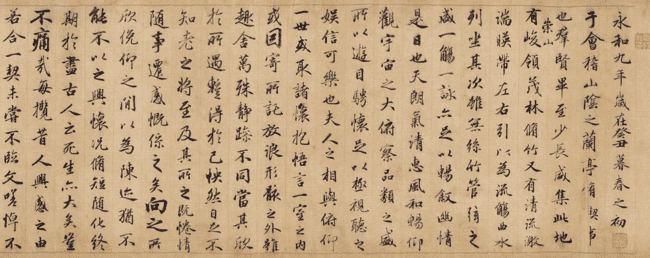 永和九年歲在癸丑暮春之初
于會稽山陰之蘭亭脩禊事
也羣賢畢至少長咸集此地
崇山
有峻領茂林脩竹又有清流激
湍暎帶左右引以為流觴曲水
列坐其次雖無絲竹管絃之
盛一觴一詠亦足以暢敘幽情
是日也天朗氣清惠風和暢仰
觀宇宙之大俯察品類之盛
所以遊目騁懷足以極視聽之
娛信可樂也夫人之相與俯仰
一世或取諸懷抱悟言一室之內
或因寄所託放浪形骸之外雖
趣舍萬殊靜躁不同當其欣
於所遇蹔得於己怏然自足不
知老之將至及其所之既惓情
隨事遷感慨係之矣向之所
欣俛仰之閒以為陳迹猶不
能不以之興懷況脩短隨化終
期於盡古人云死生亦大矣豈
不痛哉每攬昔人興感之由
若合一契未嘗不臨文嗟悼不